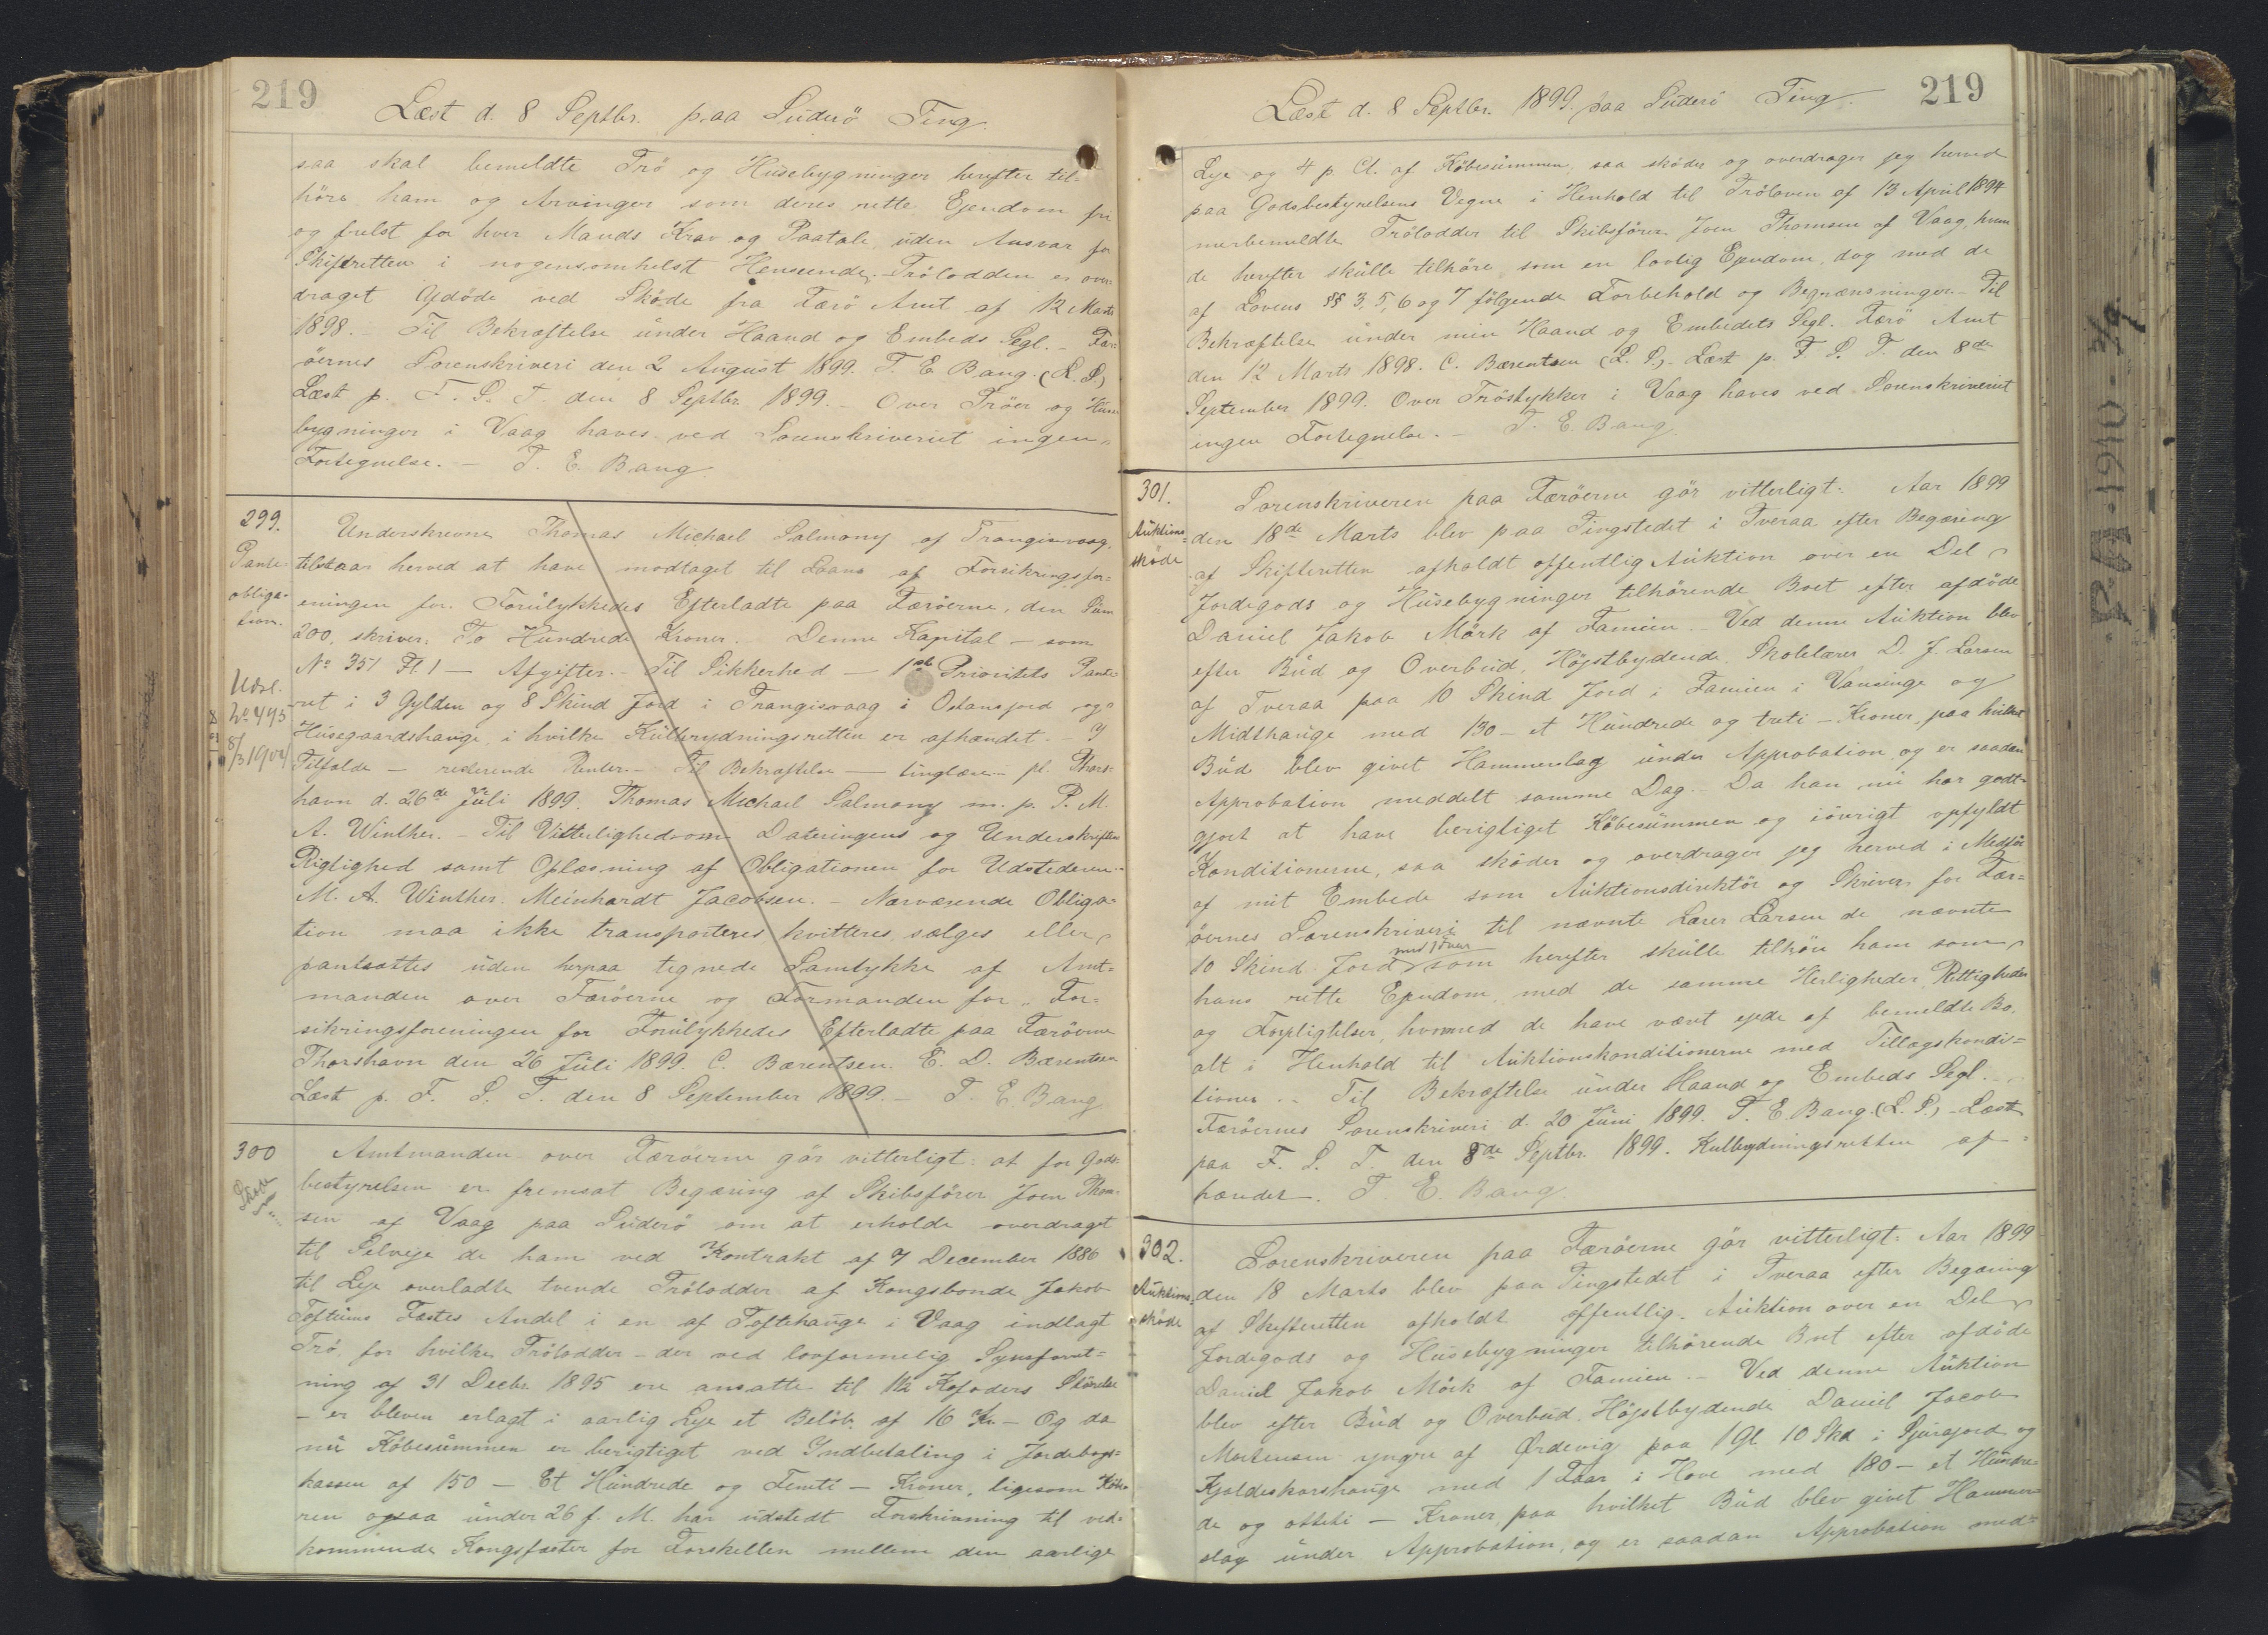 219
Læst d. 8 Septbr. paa Suderö Ting.
saa skal bemeldte Trö og Husebygninger herefter til-
höre ham og Arvinger som deres rette Ejendom fri
og frelst for hver Mands Krav og Paatale, uden Ansvar for
Skifteretten i nogensomhelst Henseende. Trölodden er over
draget Afdöde ved Sköde fra Færö Amt af 12 Marts
1898. - Til Bekræftelse under Haand og Embeds Segl. - Fær-
öernes Sorenskriveri den 2 August 1899. T. E. Bang. (L. S.)
Læst p. F. S. T. den 8 Septbr. 1899. - Over Tröer og Huse
bygninger i Vaag haves ved Sorenskriveriet ingen
Fortegnelse. - T. E. Bang
299.
Pante-
obliga-
tion.
Udsl.
No 445
8/3 1904
Underskrevne Thomas Michael Salmony af Trangisvaag,
tilstaar herved at have modtaget til Laans af Forsikringsfor-
eningen for Forulykkedes Efterladte paa Færöerne, den Sum
200, skriver: To Hundrede Kroner. - Denne Kapital - som
No 351 Fl. 1 - Afgifter. - Til Sikkerhed - 1ste Prioritets Pante-
ret i 3 Gylden og 8 Skind Jord i Trangisvaag i Ostansjord og
Husegaardshauge, i hvilke Kulbrydningsretten er afhændet. - I
Tilfælde - resterende Renter. - Til Bekræftelse - tinglæses pl. Thors-
havn d. 26de Juli 1899. Thomas Michael Salmony m. p. P. M.
A. Winther. - Til Vitterlighed om Dateringens og Underskriftens
Rigtighed samt Oplæsning af Obligationen for Udstederen. -
M. A. Winther. Meinhardt Jacobsen. - Nærværende Obliga-
tion maa ikke transporteres, kvitteres, sælges eller
pantsættes uden herpaa tegnede Samtykke af Amt-
manden over Færöerne og Formanden for "For-
sikringsforeningen for Forulykkedes Efterladte paa Færöerne
Thorshavn den 26 Juli 1899. C. Bærentsen. E. D. Bærentsen
Læst p. F. S. T. den 8 September 1899. - T. E. Bang
300
Sköde
Amtmanden over Færöerne gör vitterligt: at for Gods-
bestyrelsen er fremsat Begæring af Skibsförer Joen Thom-
sen af Vaag paa Suderö om at erholde overdraget
til Selveje de ham ved Kontrakt af 7 December 1886
til Leje overladte tvende Trölodder af Kongsbonde Jakob
Toftums Fæstes Andel i en af Toftehauge i Vaag indlagt
Trö, for hvilke Trölodder - der ved lovformelig Synsforret-
ning af 31 Decbr. 1895 ere ansatte til 1 1/2 Kofoders Störrelse
- er bleven erlagt i aarlig Leje et Belöb af 16 Kr. - Og da
nu Köbesummen er berigtiget ved Indbetaling i Jordebogs-
kassen af 150 - Et Hundrede og Femti - Kroner, ligesom Köbe
ren ogsaa under 26 f. M. har udstedt Forskrivning til ved-
kommende Kongsfæster for Forskellen mellem den aarlige
219
Læst d. 8 Septbr. 1899. paa Suderö Ting.
Leje og 4 p. Ct. af Köbesummen, saa sköder og overdrager jeg herved
paa Godsbestyrelsens Vegne i Henhold til Tröloven af 13 April 1894
mærbemeldte Trölodder til Skibsförer Joen Thomsen af Vaag, hvem
de herefter skulle tilhöre som en lovlig Ejendom, dog med de
af Lovens §§ 3, 5, 6 og 7 fölgende Forbehold og Begrænsninger. - Til
Bekræftelse under min Haand og Embedets Segl. Færö Amt
den 12 Marts 1898. C. Bærentsen (L. S.). Læst p. F. S. T. den 8de
September 1899. Over Tröstykker i Vaag haves ved Sorenskriveriet
ingen Fortegnelse. - T. E. Bang.
301.
Auktions-
sköde
Sorenskriveren paa Færöerne gör vitterligt: Aar 1899
den 18de Marts blev paa Tingstedet i Tveraa efter Begæring
af Skifteretten afholdt offentlig Auktion over en Del
Jordegods og Husebygninger tilhörende Boet efter afdöde
Daniel Jakob Mörk af Famien. - Ved denne Auktion blev
efter Bud og Overbud, Höjstbydende, Skolelærer D. J. Larsen
af Tveraa paa 10 Skind Jord i Famien i Vansinge og
Midthauge med 130 - et Hundrede og treti - Kroner, paa hvilket
Bud blev givet Hammerslag under Approbation, og er saadan
Approbation meddelt samme Dag. - Da han nu har godt-
gjort at have berigtiget Köbesummen og iövrigt opfyldt
Konditionerne, saa sköder og overdrager jeg herved i Medför
af mit Embede som Auktionsdirektör og Skriver for Fær-
öernes Sorenskriveri til nævnte Lærer Larsen de nævnte
10 Skind Jord som herefter skulle tilhöre ham som
hans rette Ejendom, med de samme Herligheder, Rettigheder
og Forpligtelser, hvormed de have været ejede af bemeldte Bo,
alt i Henhold til Auktionskonditionerne med Tillægskondi-
tioner. - Til Bekræftelse under Haand og Embeds Segl. -
Færöernes Sorenskriveri d. 20 Juni 1899. T. E. Bang. (L. S.) - Læst
paa F. S. T. den 8de Septbr. 1899. Kulbrydningsretten af-
hændet. T. E. Bang.
302.
Auktions-
sköde
Sorenskriveren paa Færöerne gör vitterligt: Aar 1899
den 18 Marts blev paa Tingstedet i Tveraa efter Begæring
af Skifteretten afholdt offentlig Auktion over en Del
Jordegods og Husebygninger tilhörende Boet efter afdöde
Daniel Jakob Mörk af Famien. - Ved denne Auktion
blev efter Bud og Overbud, Höjstbydende Daniel Jacob
Mortensen yngre af Ørdevig paa 1 Gl. 10 Skd i Sjurajord og
Kjoldeskorshauge med 1 Faar i Hove med 180 - et Hundre-
de og otteti - Kroner, paa hvilket Bud blev givet Hammer-
slag under Approbation, og er saadan Approbation med-